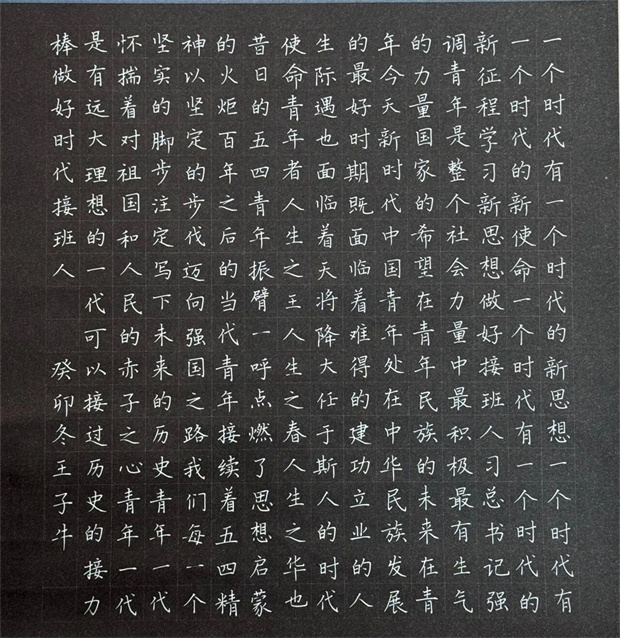 一个时代有一个时代的新思想一个时代有
一个时代的新使命一个时代有一个时代的
新征程学习新思想做好接班人习总书记强
调青年是整个社会力量中最积极最有生气
的力量国家的希望在青年民族的未来在青
年今天新时代中国青年处在中华民族发展
的最好时期既面临着难得的建功立业的人
生际遇也面临着天将降大任于斯人的时代
使命青年者人生之王人生之春人生之华也
昔日的五四青年振臂一呼点燃了思想启蒙
的火炬百年之后的当代青年接续着五四精
神以坚定的步伐迈向强国之路我们每一个
坚实的脚步注定写下未来的历史青年一代
怀揣着对祖国和人民的赤子之心青年一代
是有远大理想的一代可以接过历史的接力
棒做好时代接班人 癸卯冬王子牛